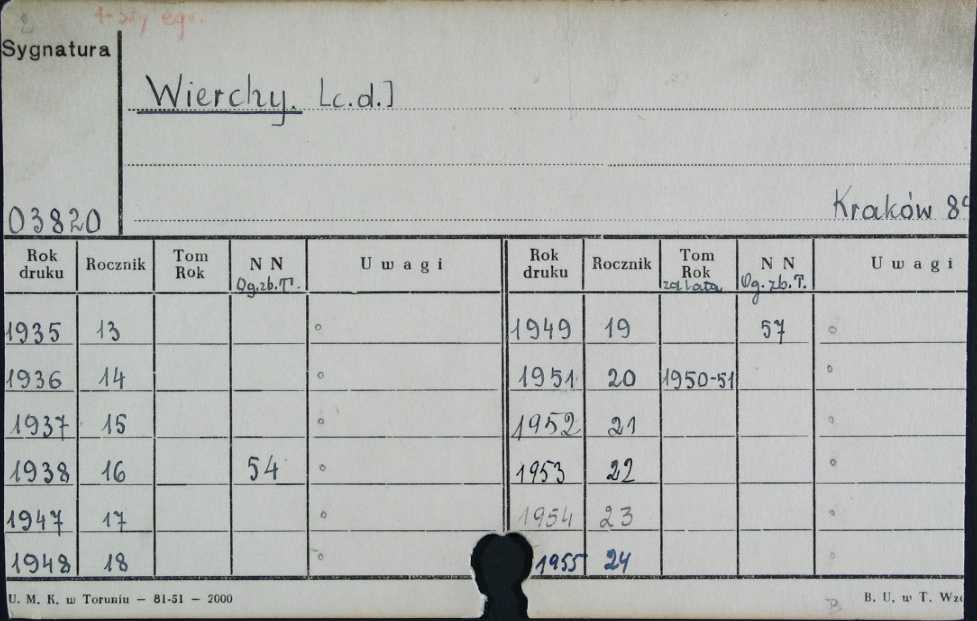 1-szy egz.
Sygnatura
Wierchy. [c.d.]
03820
Kraków
Rok druku Rocznik Tom Rok N N Uwagi Rok druku Rocznik Tom Rok N N Uwagi
Og.zb.T. za lata Og.zb.T.
1935 13 1949 19 57
1936 14 1951 20 1950-51
1937 15 1952 21
1938 16 54 1953 22
1947 17 1954 23
1948 18 1955 24
U. M. K. w Toruniu — 81-51 — 2000
B. U. w T.